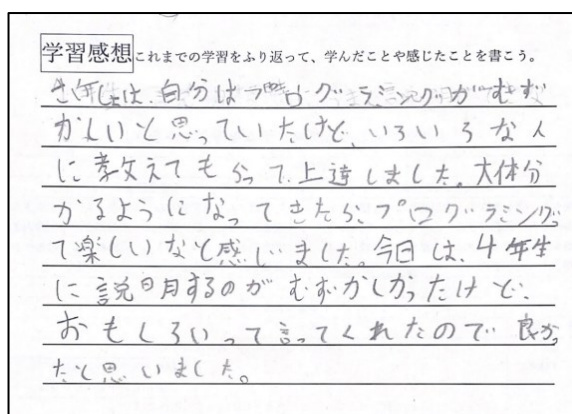 学習感想 これまでの学習をふり返って、学んだことや感じたことを書こう。
さ年しょは、自分はプログラミングがむず
かしいと思っていたけど、いろいろな人
に教えてもらって、上達しました。大体分
かるようになってきたら、プログラミング
て楽しいなと感じました。今日は、4年生
に説明するのがむずかしかったけど、
おもしろいって言ってくれたので良かっ
たと思いました。